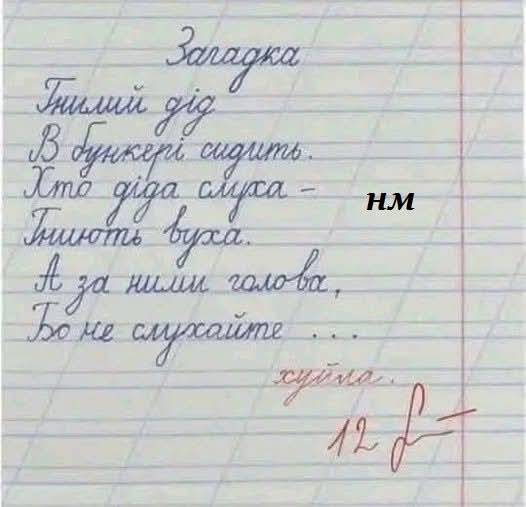 Загадка
Гнилий дід
В бункері сидить.
Хто діда слуха –
нм
Гниють вуха.
А за ними голова,
Бо не слухайте ...
хуйла.
12